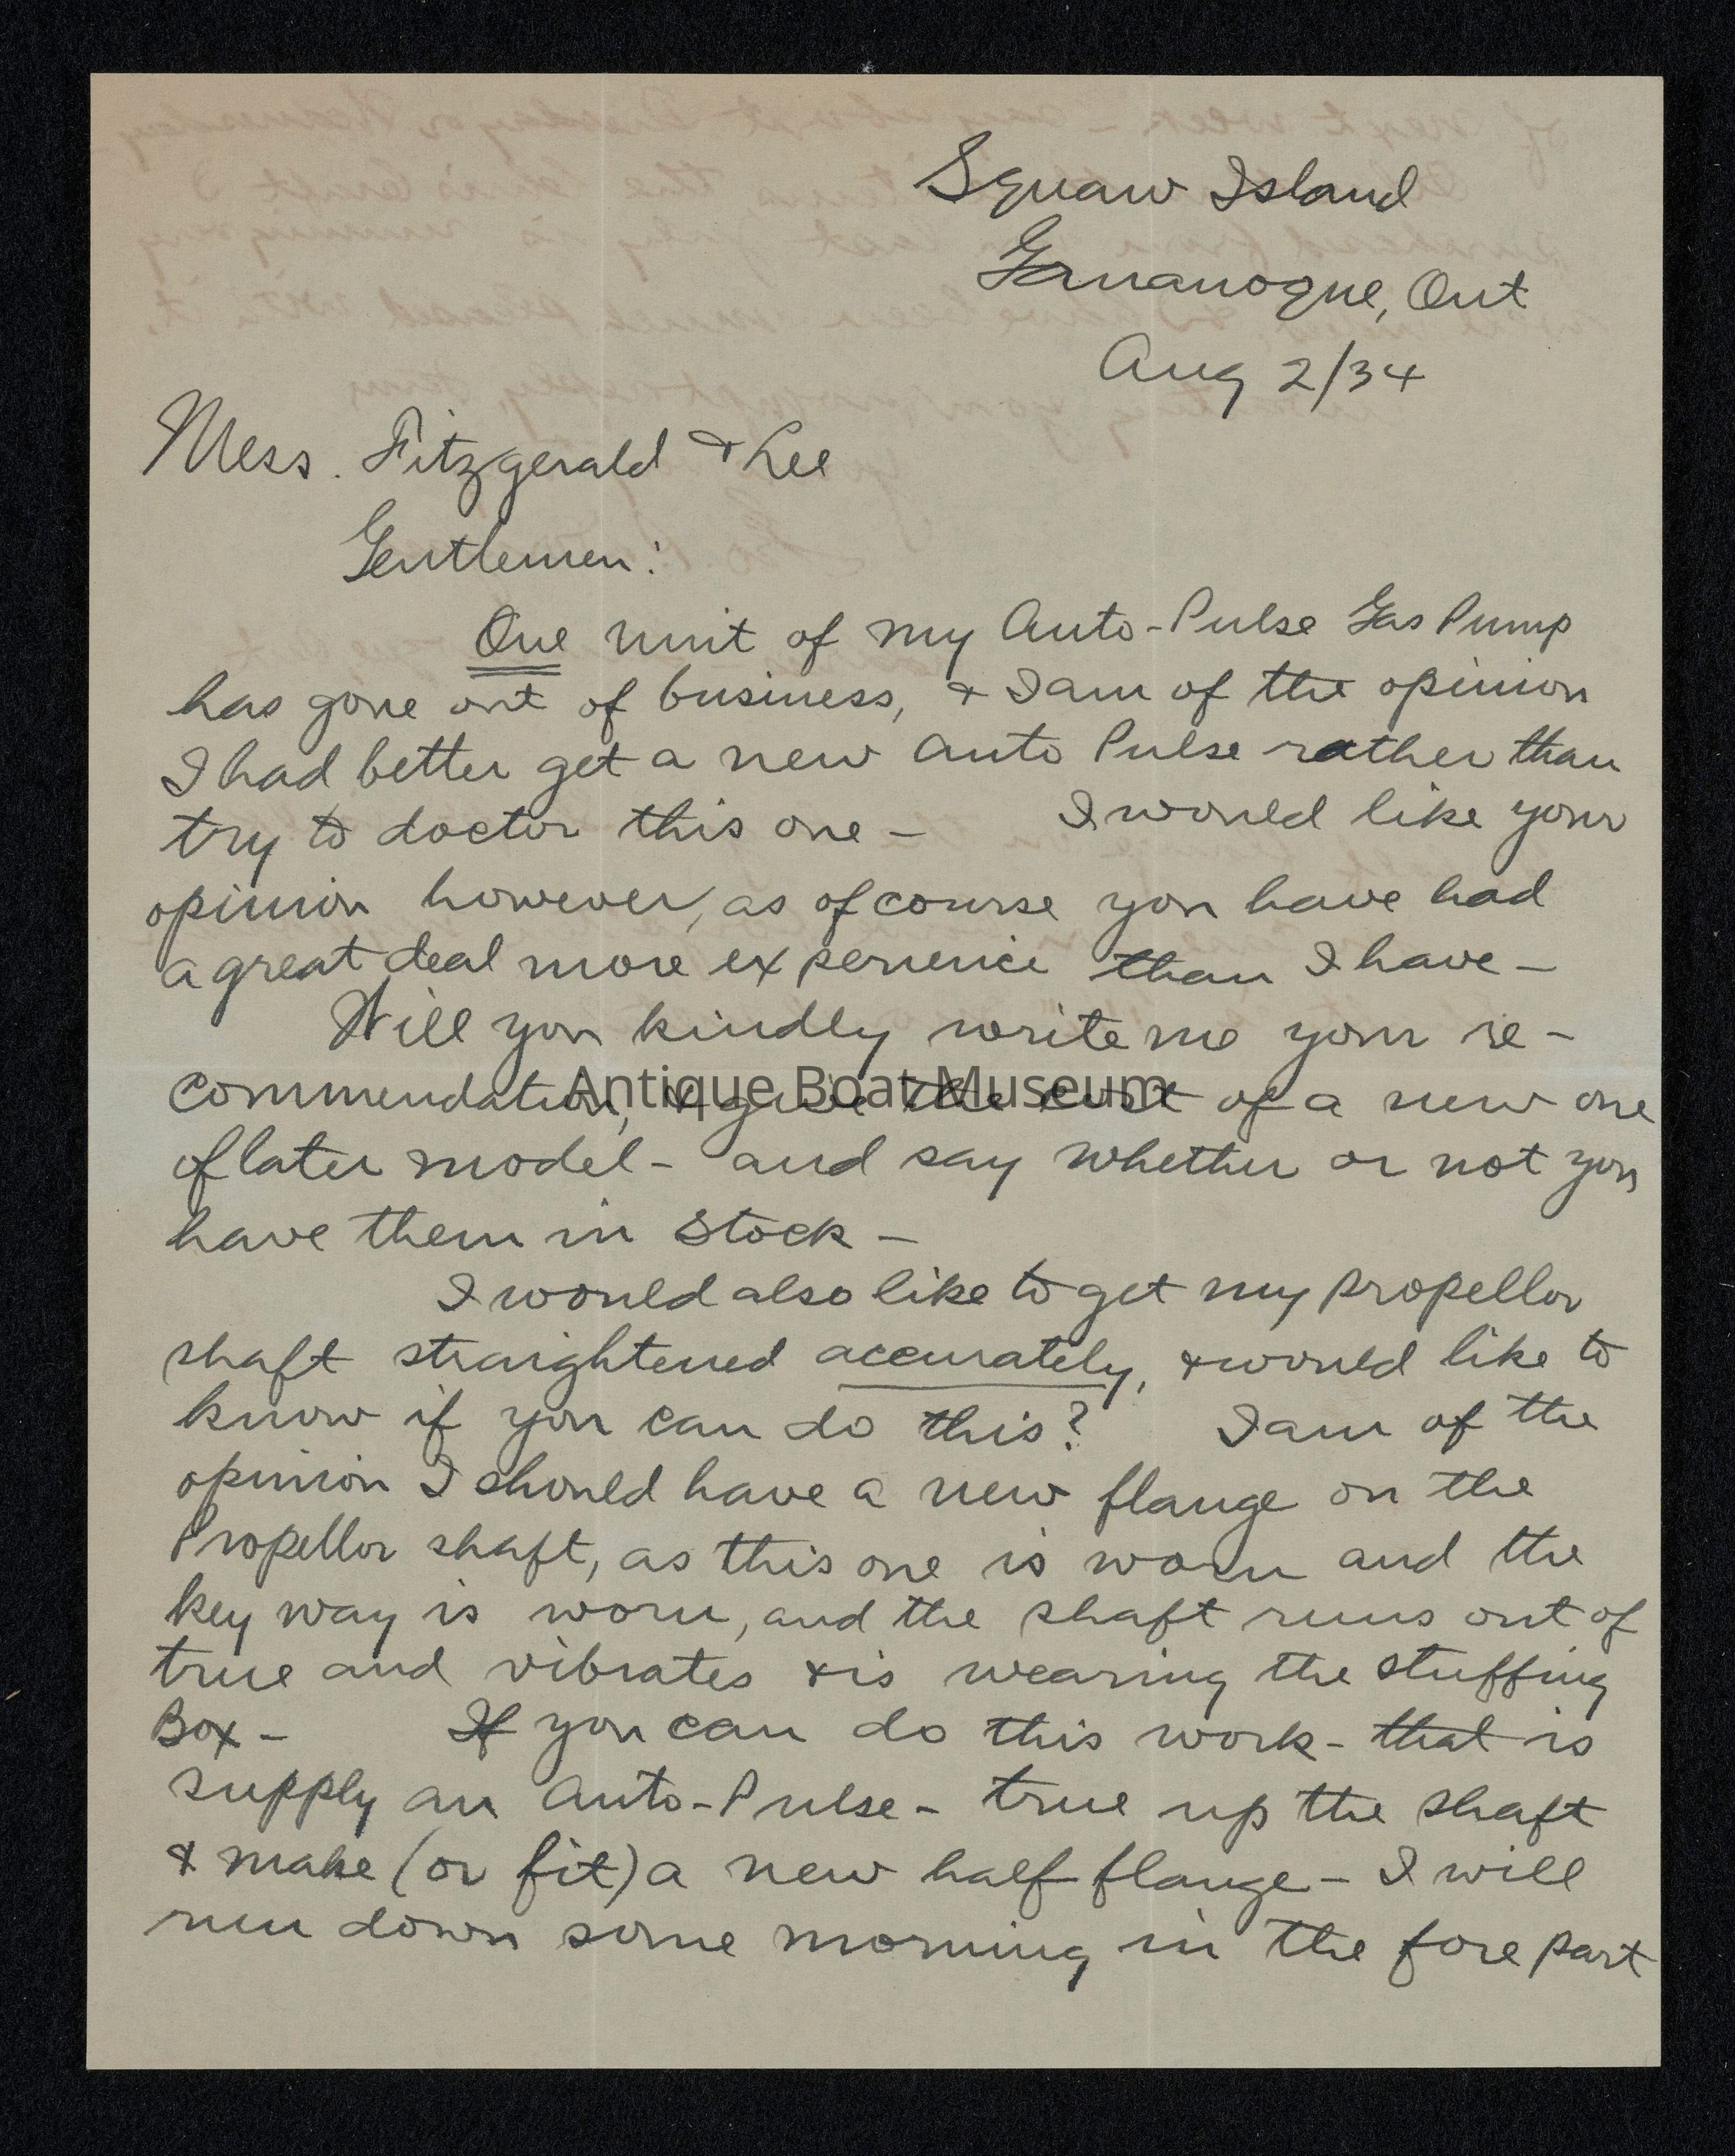 Squaw Island
Gananoque, Ont
Aug 2/34
Mess. Fitzgerald & Lee
Gentlemen:
One unit of my Auto-Pulse Gas Pump
has gone out of business, & I am of the opinion
I had better get a new Auto Pulse rather than
try to doctor this one - I would like your
opinion however, as of course you have had
a great deal more experience than I have -
Will you kindly write me your re-
commendation, & give the cost of a new one
Antique Boat Museum
of later model - and say whether or not you
have them in stock -
I would also like to get my propellor
shaft straightened accurately, & would like to
know if you can do this? I am of the
opinion I should have a new flange on the
Propellor shaft, as this one is worn and the
key way is worn, and the shaft runs out of
true and vibrates & is wearing the stuffing
Box - If you can do this work - that is
supply an Auto-Pulse - true up the shaft
& make (or fit) a new half flange - I will
run down some morning in the fore part